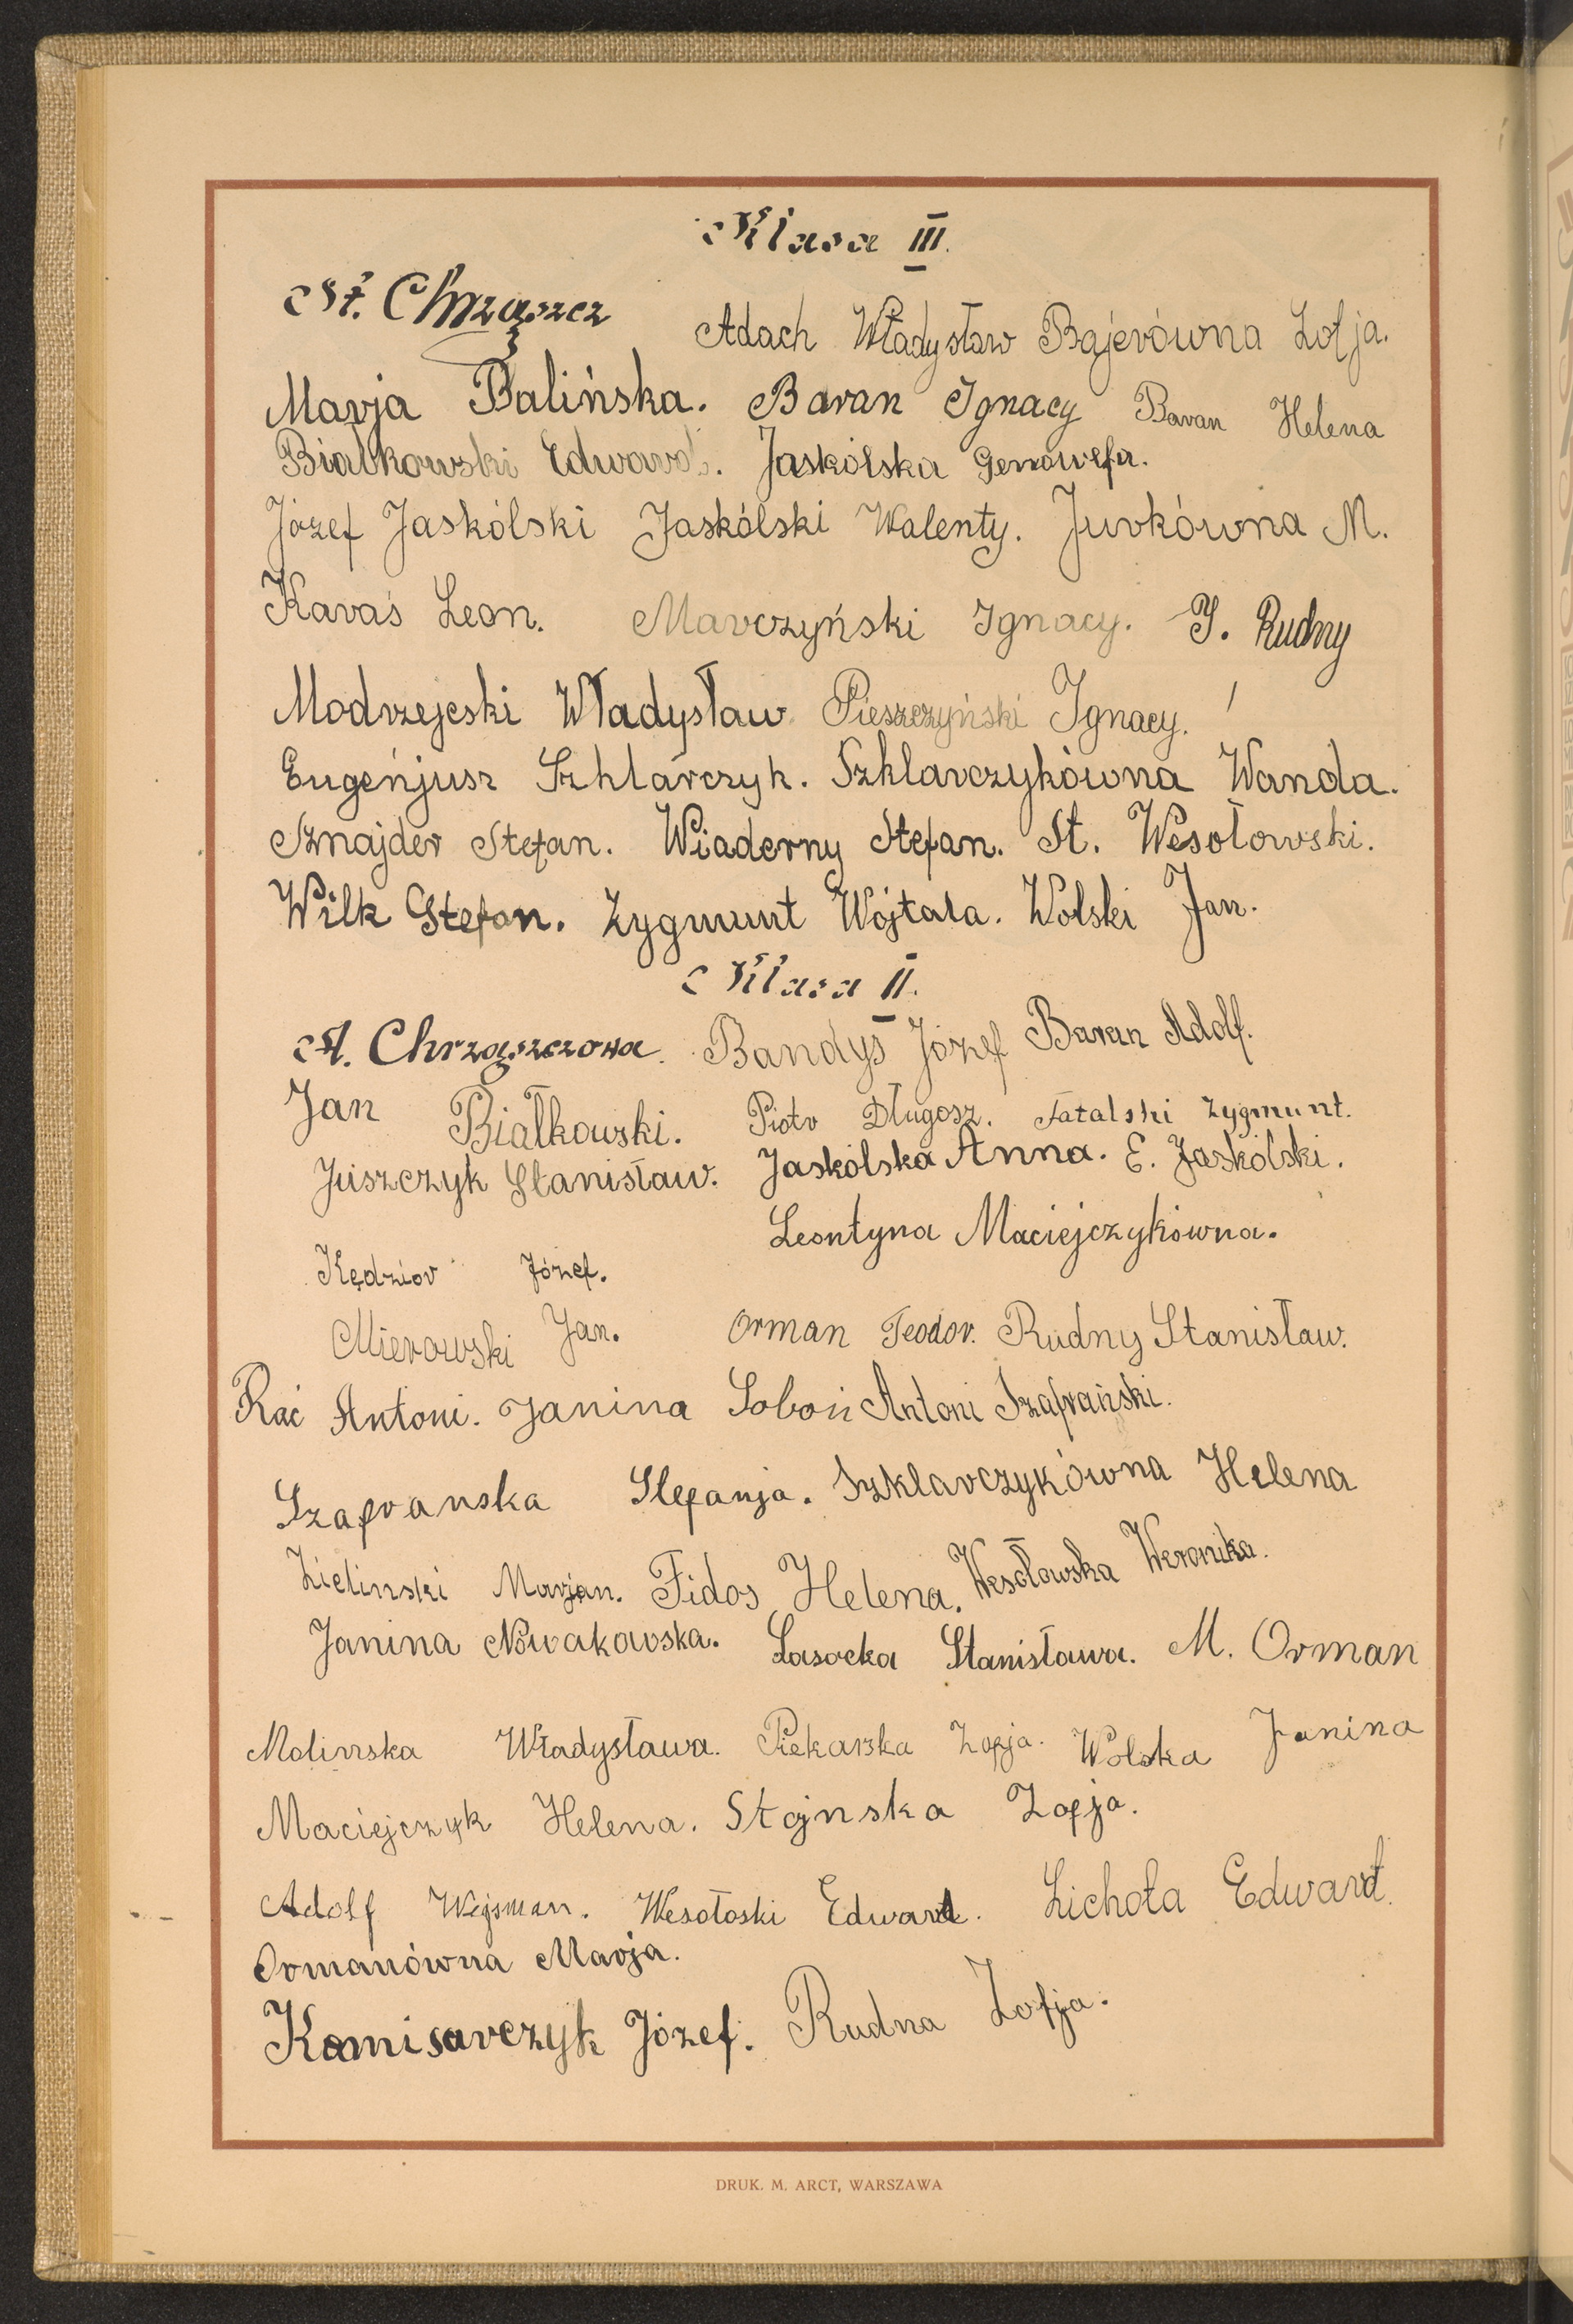 Klasa III.
St. Chrząszcz Adach Władysław Bajerówna Zofja.
Marja Balińska. Baran Ignacy Baran Helena
Białkowski Edward. Jaskólska Genowefa.
Józef Jaskólski Jaskólski Walenty. Jurkówna M.
Karaś Leon. Marczyński Ignacy. J. Rudny
Modrzejeski Władysław Pieszczyński Ignacy.
Eugenjusz Szklarczyk. Szklarczykówna Wanda.
Sznajder Stefan. Wiaderny Stefan. St. Wesołowski.
Wilk Stefan. Zygmunt Wójtala. Wolski Jan.
Klasa II.
A. Chrząszczowa. Bandyś Józef Baran Adolf.
Jan Białkowski. Piotr Długosz. Fatalski Zygmunt.
Juszczyk Stanisław. Jaskólska Anna. E. Jaskólski.
Leontyna Maciejczykówna.
Kędzior Józef.
Mierowski Jan. Orman Teodor. Rudny Stanisław.
Rać Antoni. Janina Soboń Antoni Szafrański.
Szafranska Stefanja. Szklarczykówna Helena
Zielinski Marjan. Fidos Helena. Wesołowska Weronika.
Janina Nowakowska. Lasocka Stanisława. M. Orman
Molinska Władysława. Piekarska Zofja. Wolska Janina
Maciejczyk Helena. Stojnska Zofja.
Adolf Wejsman. Wesołoski Edward. Lichota Edward.
Ormanówna Marja.
Komisarczyk Józef. Rudna Zofja.
DRUK. M. ARCT, WARSZAWA